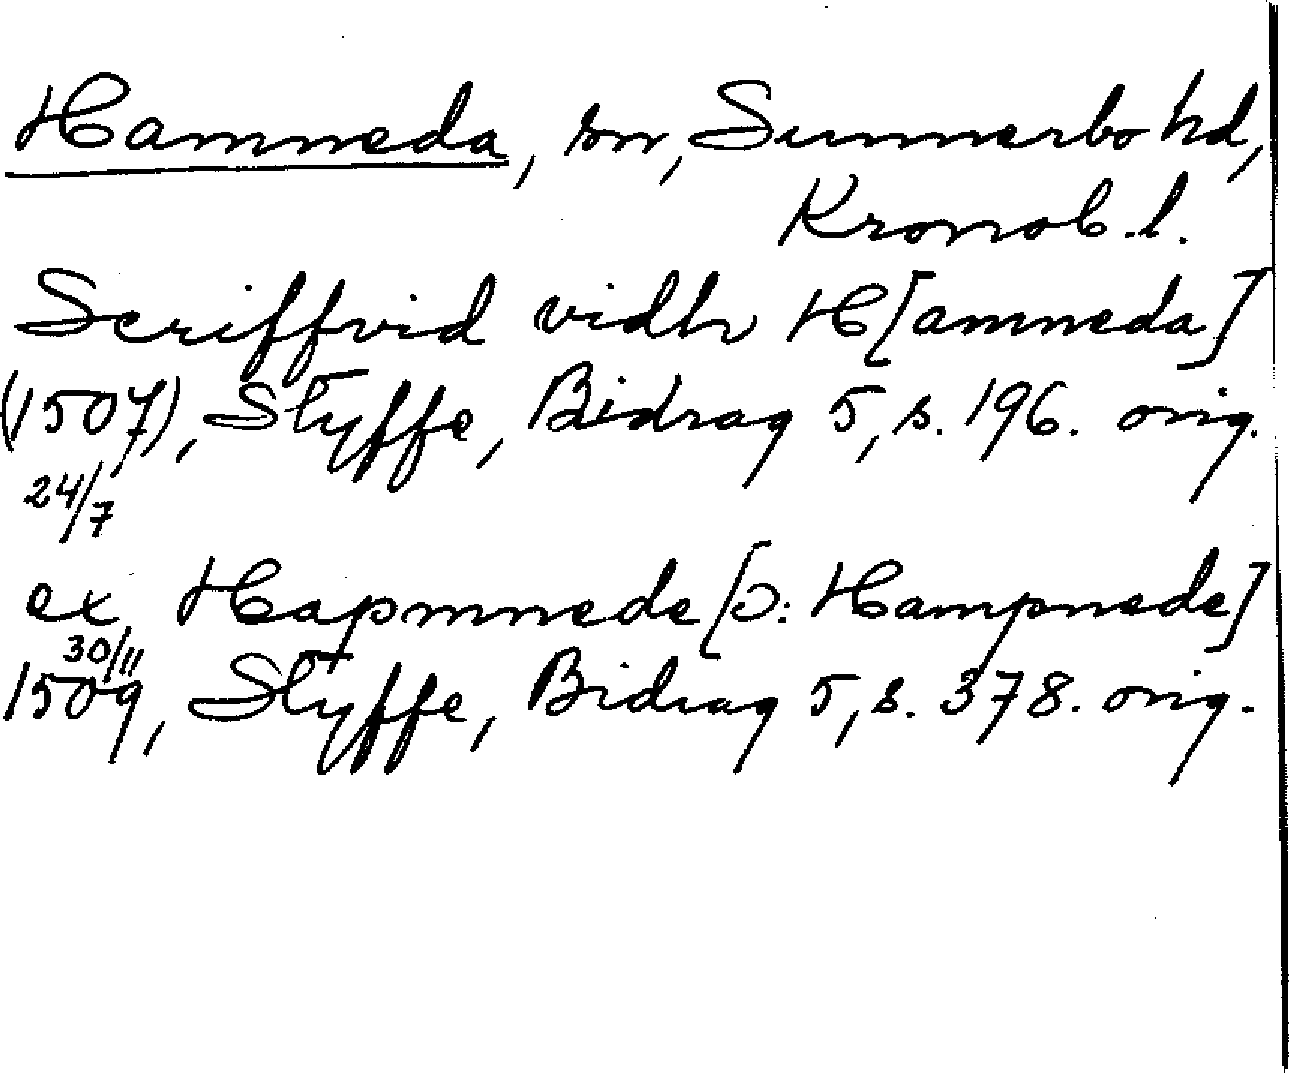 Hamneda, sn, Sunnerbo hd,
Kronob. l.
Scriffvid vidhr H[amneda]
(1507), Styffe, Bidrag 5, s. 196. orig.
24/7
ex Hapmnede [ɔ: Hampnede]
30/11
1509, Styffe, Bidrag 5, s. 378. orig.